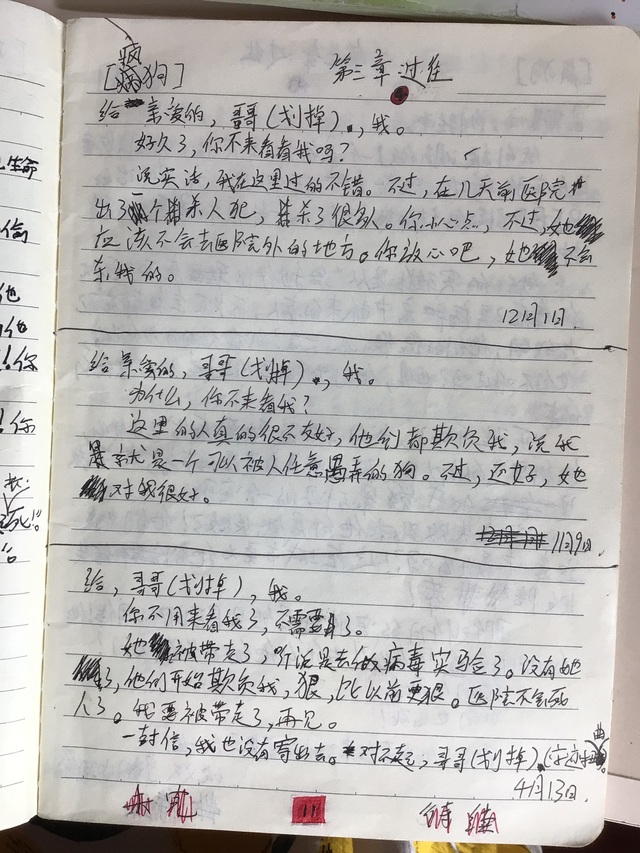 疯
[病狗] 第三章 过往
给亲爱的，哥哥(划掉)，我。
好久了，你不来看看我吗？
说实话，我在这里过的不错。不过，在几天前医院
出了个杀人犯，杀了很多人。你小心点，不过，她
应该不会去医院外的地方。你放心吧，她不会
杀我的。
12月11日.
给亲爱的，哥哥(划掉)，我。
为什么，你不来看我？
这里的人真的很不友好，他们都欺负我，说我
就是一个可以被人任意愚弄的狗。不过，还好，她
对我很好。
11月9日.
给，哥哥(划掉)，我。
你不用来看我了，不需要了。
她被带走了，听说是去做病毒实验了。没有她
了，他们开始欺负我，狠，比以前更狠。医院不会死
人了。我要被带走了，再见。
一封信，我也没有寄出去。对不起，哥哥(划掉)
4月13日.
11
生命
他
他
!你
!你